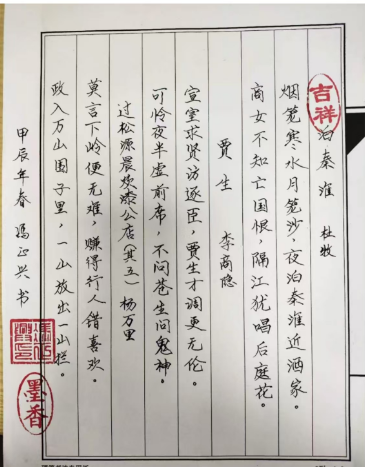 吉祥
泊秦淮 杜牧
烟笼寒水月笼沙，夜泊秦淮近酒家。
商女不知亡国恨，隔江犹唱后庭花。
贾生 李商隐
宣室求贤访逐臣，贾生才调更无伦。
可怜夜半虚前席，不问苍生问鬼神。
过松源晨炊漆公店（其五）杨万里
莫言下岭便无难，赚得行人错喜欢。
政入万山围子里，一山放出一山拦。
甲辰年春 冯正兴书
墨香